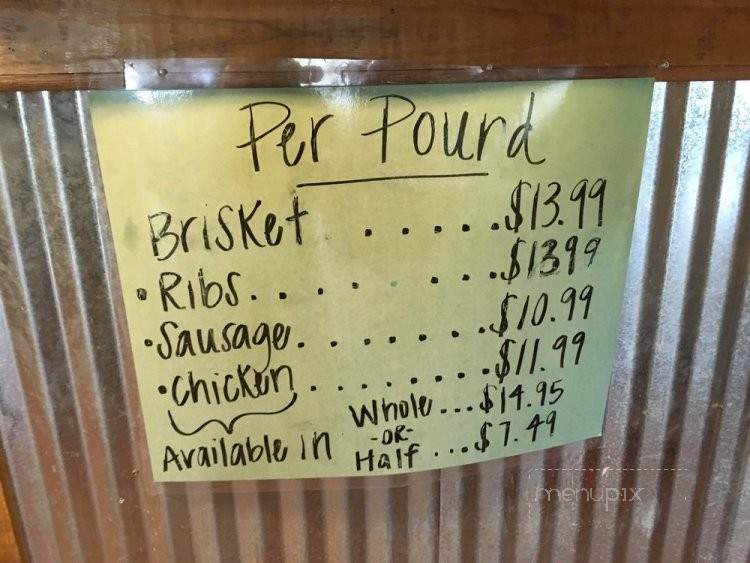 Per Pound
Brisket . . . . . $13.99
• Ribs. . . . . . . . $13.99
• Sausage. . . . . . . . $10.99
• Chicken . . . . . . . . $11.99
Available in Whole ... $14.95
-OR-
Half ... $7.49
menupix